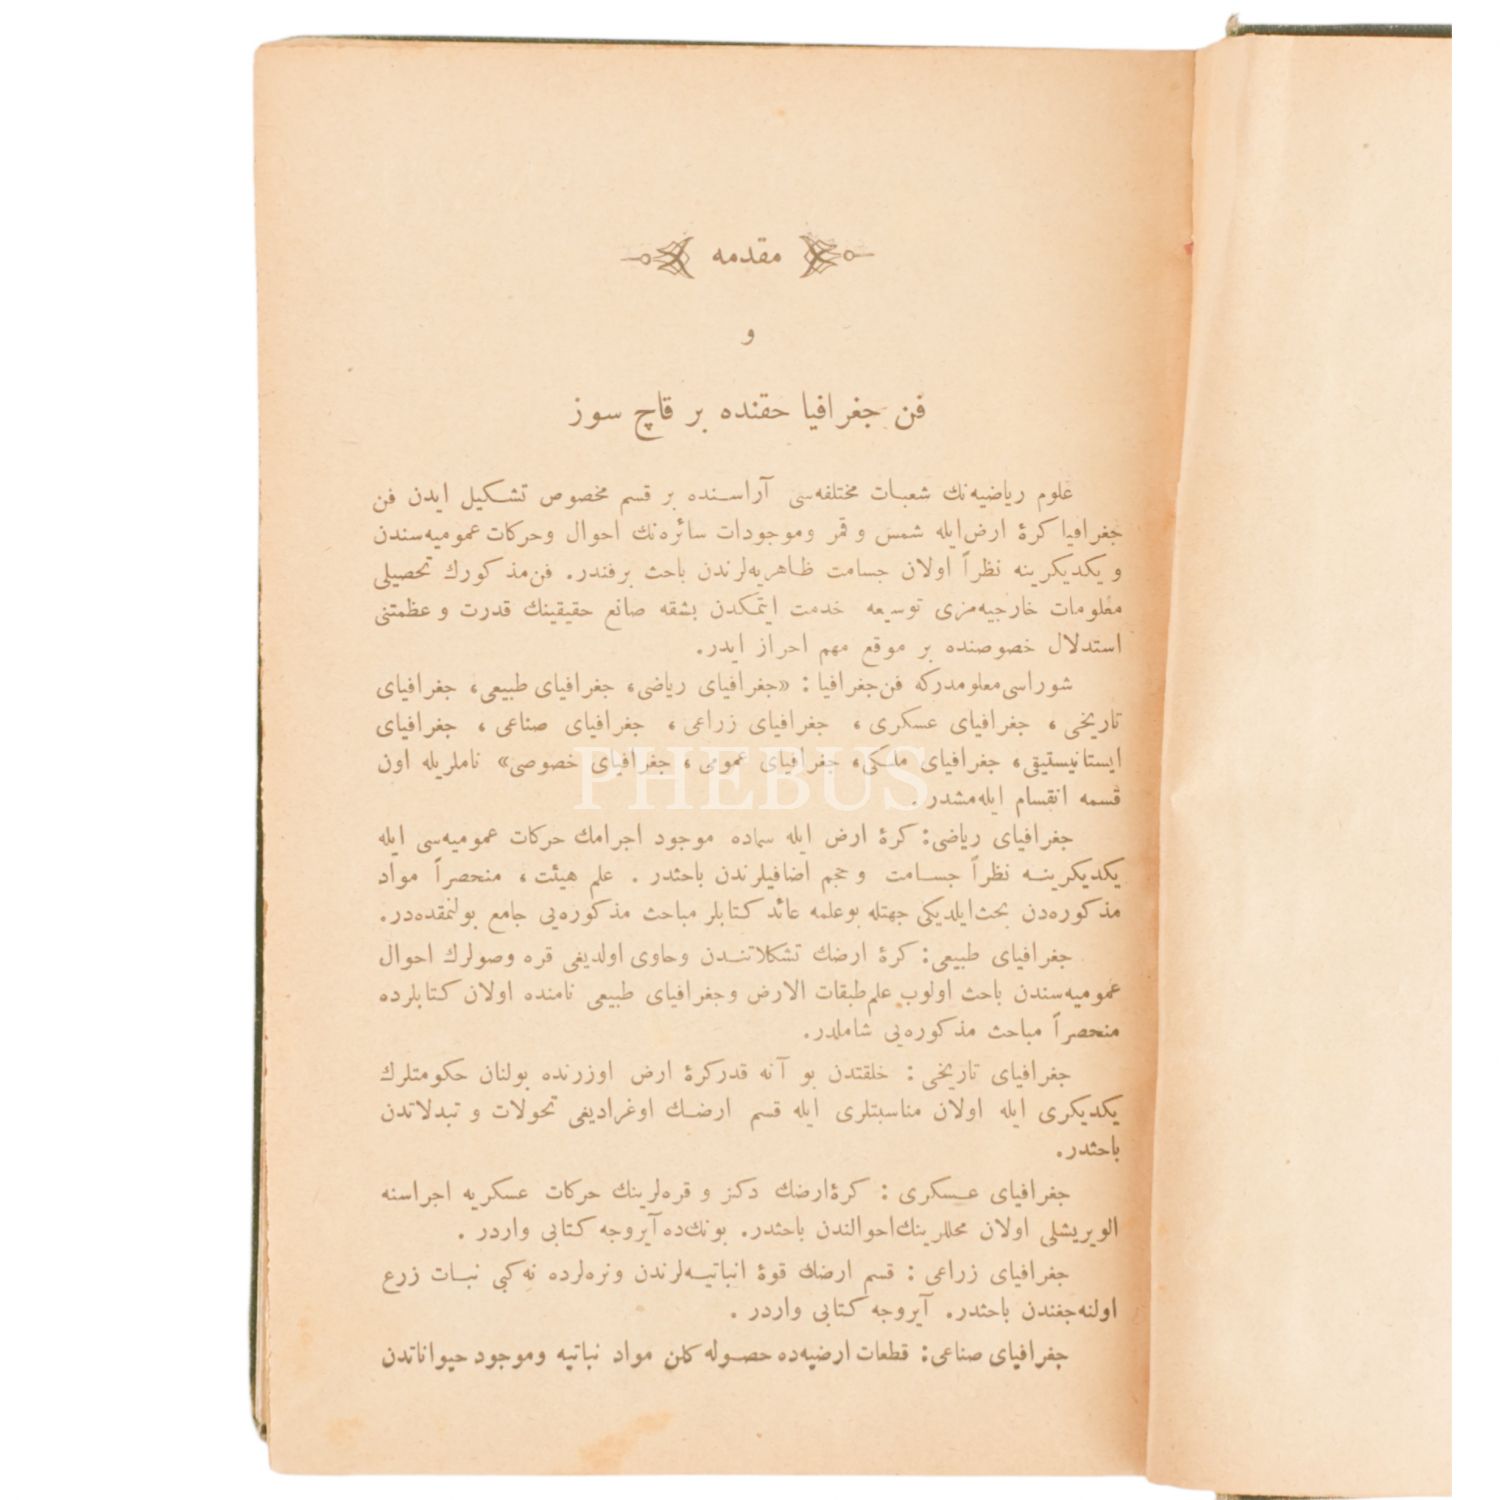 مقدمه
و
فن جغرافیا حقنده بر قاچ سوز
علوم ریاضیه‌نك شعبات مختلفه‌سی آراسنده بر قسم مخصوص تشکیل ایدن فن
جغرافیا کرۀ ارض‌ایله شمس و قمر وموجودات سائره‌نك احوال وحرکات عمومیه‌سندن
و یکدیکرینه نظراً اولان جسامت ظاهریه‌لرندن باحث برفندر. فن‌مذکورك تحصیلی
معلومات خارجیه‌مزی توسیعه خدمت ایتمکدن بشقه صانع حقیقینك قدرت و عظمتنی
استدلال خصوصنده بر موقع مهم احراز ایدر.
شوراسی‌معلومدرکه فن‌جغرافیا : «جغرافیای ریاضی، جغرافیای طبیعی، جغرافیای
تاریخی ، جغرافیای عسکری ، جغرافیای زراعی ، جغرافیای صناعی ، جغرافیای
ایستاتیستیقی، جغرافیای ملکی، جغرافیای عمومی، جغرافیای خصوصی» ناملریله اون
قسمه انقسام ایله‌مشدر .
PHEBUS
جغرافیای ریاضی: کرۀ ارض ایله سماده موجود اجرامك حرکات عمومیه‌سی ایله
یکدیکرینه نظراً جسامت و حجم اضافیلرندن باحثدر . علم هیئت، منحصراً مواد
مذکوره‌دن بحث‌ایلدیکی جهتله بوعلمه عائد کتابلر مباحث مذکوره‌یی جامع بولنمقده‌در.
جغرافیای طبیعی: کرۀ ارضك تشکلاتندن وحاوی اولدیغی قره وصولرك احوال
عمومیه‌سندن باحث اولوب علم‌طبقات الارض وجغرافیای طبیعی نامنده اولان کتابلرده
منحصراً مباحث مذکوره‌یی شاملدر.
جغرافیای تاریخی : خلقتدن بو آنه قدرکرۀ ارض اوزرنده بولنان حکومتلرك
یکدیکری ایله اولان مناسبتلری ایله قسم ارضك اوغرادیغی تحولات و تبدلاتدن
باحثدر.
جغرافیای عسکری : کرۀ‌ارضك دکز و قره‌لرینك حرکات عسکریه اجراسنه
الویریشلی اولان محللرینك‌احوالندن باحثدر. بونك‌ده آیروجه کتابی واردر .
جغرافیای زراعی : قسم ارضك قوۀ انباتیه‌لرندن ونره‌لرده نه‌کبی نبات زرع
اولنه‌جغندن باحثدر. آیروجه کتابی واردر .
جغرافیای صناعی: قطعات ارضیه‌ده حصوله کلن مواد نباتیه وموجود حیواناتدن